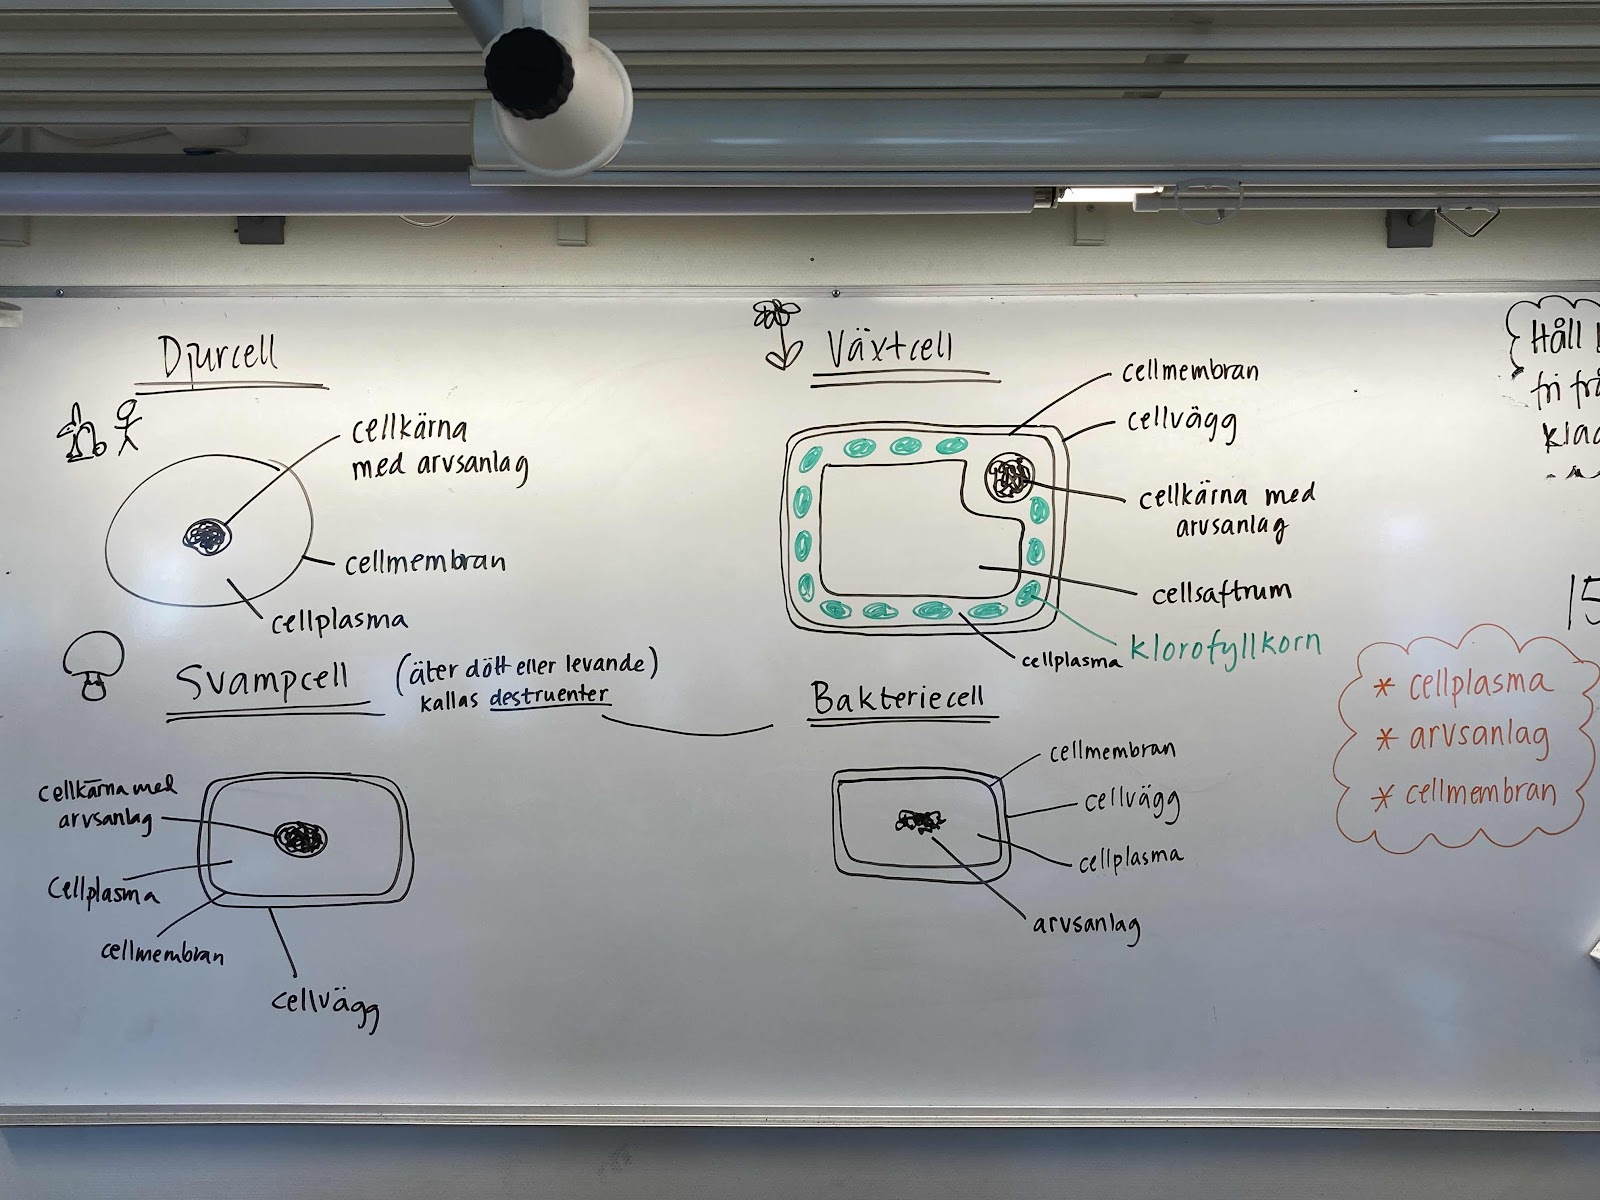 Djurcell
cellkärna
med arvsanlag
cellmembran
cellplasma
Växtcell
cellmembran
cellvägg
cellkärna med
arvsanlag
cellsaftrum
klorofyllkorn
cellplasma
Svampcell
(äter dött eller levande)
kallas destruenter
cellkärna med
arvsanlag
Cellplasma
cellmembran
cellvägg
Bakteriecell
cellmembran
cellvägg
cellplasma
arvsanlag
Håll
fri
* cellplasma
* arvsanlag
* cellmembran
15